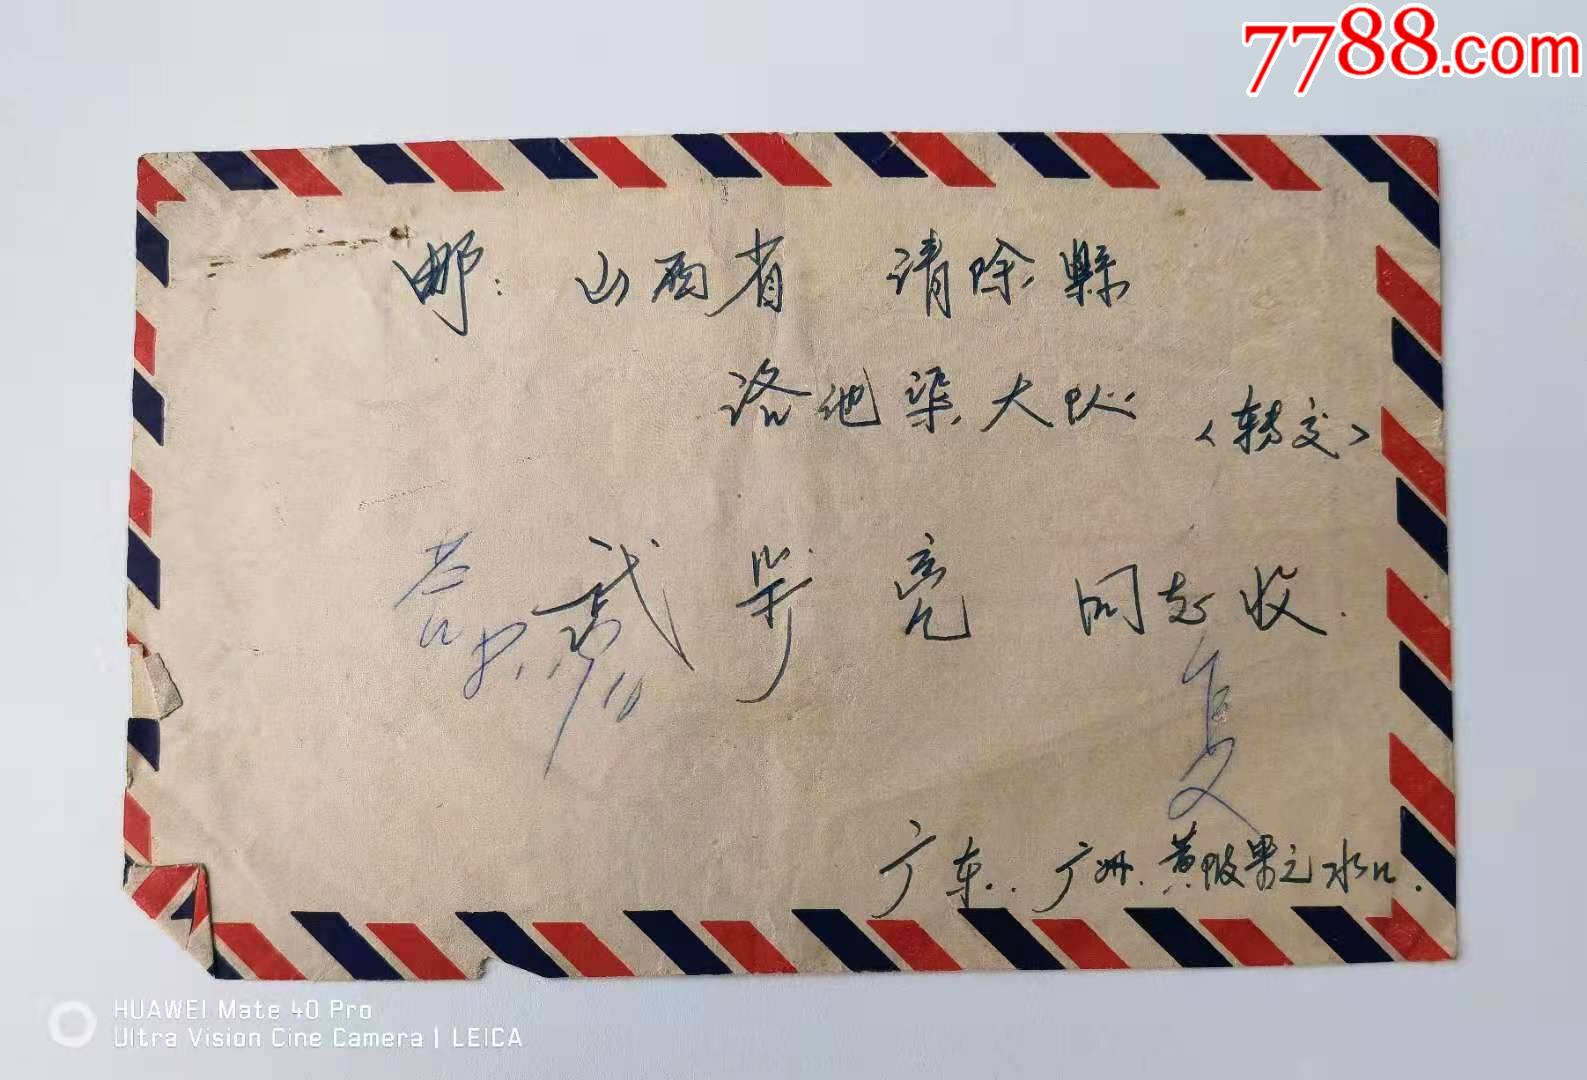 7788.com
邮: 山西省 清徐縣
洛池渠大队 <转交>
武步亮 同志收.
复
广东. 广州. 黄陂果元水口.
HUAWEI Mate 40 Pro
Ultra Vision Cine Camera | LEICA